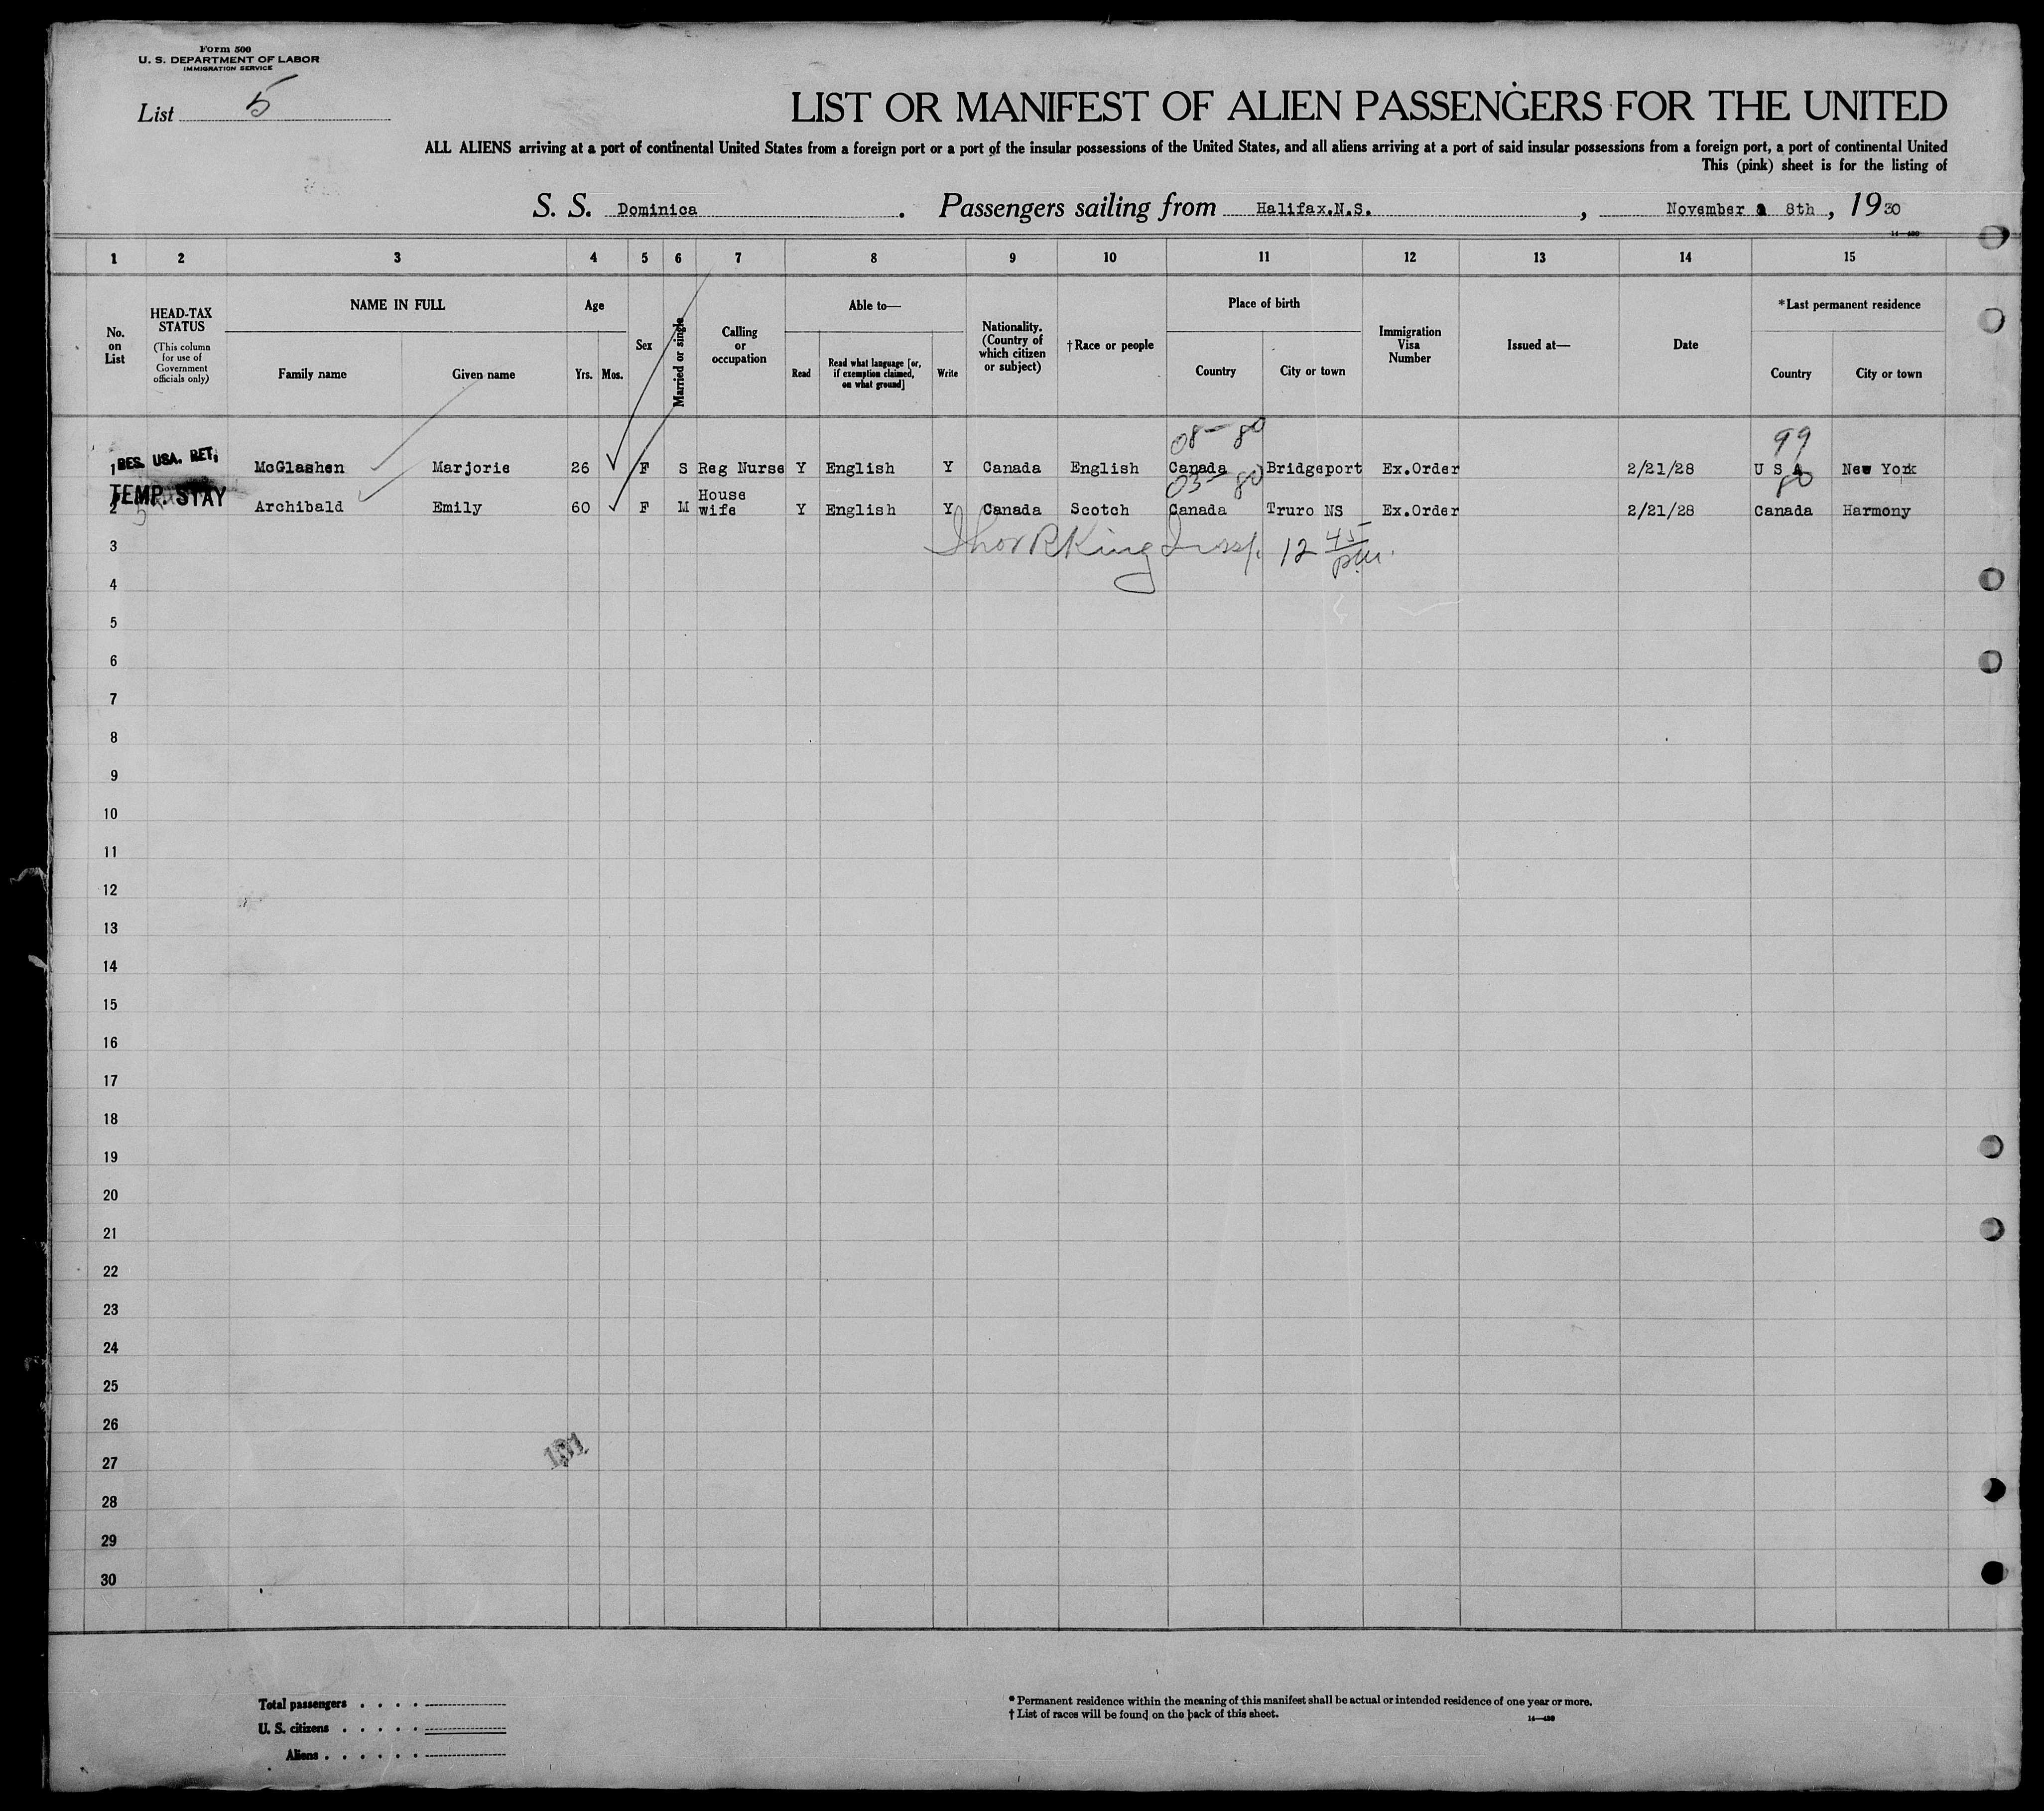 Form 500
U. S. DEPARTMENT OF LABOR
IMMIGRATION SERVICE
List 5
LIST OR MANIFEST OF ALIEN PASSENGERS FOR THE UNITED
ALL ALIENS arriving at a port of continental United States from a foreign port or a port of the insular possessions of the United States, and all aliens arriving at a port of said insular possessions from a foreign port, a port of continental United
This (pink) sheet is for the listing of
S. S. Dominica. Passengers sailing from Halifax.N.S., November 8th, 1930
14—430
1 2 3 4 5 6 7 8 9 10 11 12 13 14 15
No. on List
HEAD-TAX STATUS
(This column for use of Government officials only)
NAME IN FULL
Family name Given name
Age
Yrs. Mos.
Sex
Married or single
Calling or occupation
Able to—
Read
Read what language [or, if exemption claimed, on what ground]
Write
Nationality. (Country of which citizen or subject)
†Race or people
Place of birth
Country City or town
Immigration Visa Number
Issued at—
Date
*Last permanent residence
Country City or town
08- 80 99
1 RES. USA. RET. McGlashen Marjorie 26 F S Reg Nurse Y English Y Canada English Canada Bridgeport Ex.Order 2/21/28 U S A New York
03- 80 80
2 TEMP. STAY Archibald Emily 60 F M House wife Y English Y Canada Scotch Canada Truro NS Ex.Order 2/21/28 Canada Harmony
3 R King Insp. 12 45 pm.
4
5
6
7
8
9
10
11
12
13
14
15
16
17
18
19
20
21
22
23
24
25
26
27
28
29
30
Total passengers . . . .
U. S. citizens . . . . .
Aliens . . . . . .
* Permanent residence within the meaning of this manifest shall be actual or intended residence of one year or more.
† List of races will be found on the back of this sheet.
14—430